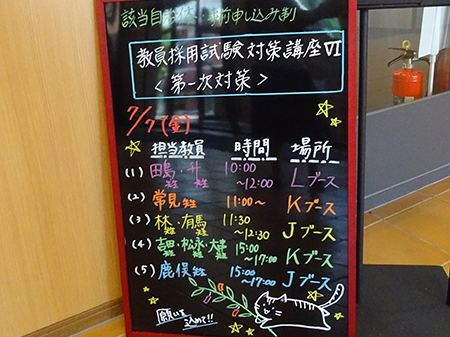 該当自治体・事前申し込み割
教員採用試験対策講座Ⅵ
<第一次対策>
7/7(金)
担当教員 時間 場所
(1) 田島先生・升先生 10:00~12:00 Lブース
(2) 常見先生 11:00~ Kブース
(3) 林先生・有馬先生 11:30~12:30 Jブース
(4) 吉田先生・松永先生・大単先生 15:00~17:00 Kブース
(5) 鹿俣先生 15:00~17:00 Jブース
願いを
込めて!!